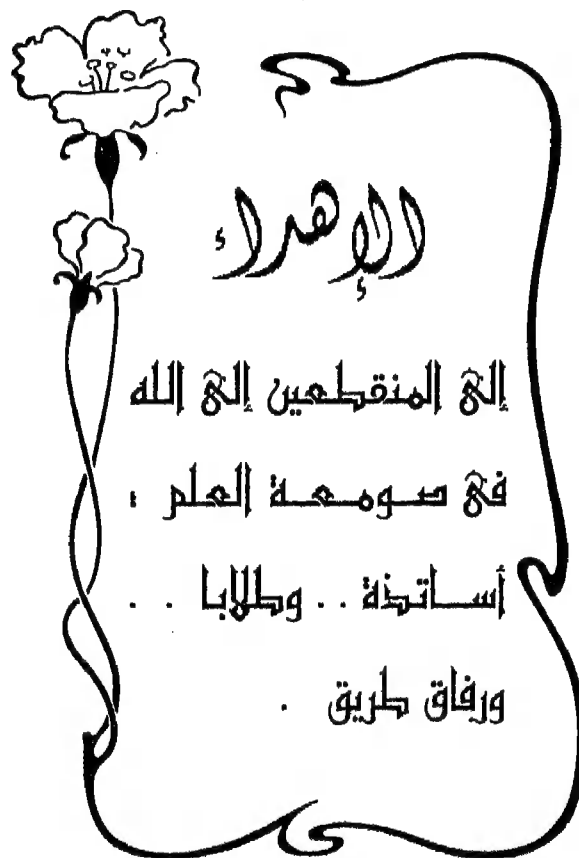 الإهداء
إلى المنقطعين إلى الله
فى صومعة العلم :
أساتذة .. وطلابا . .
ورفاق طريق .